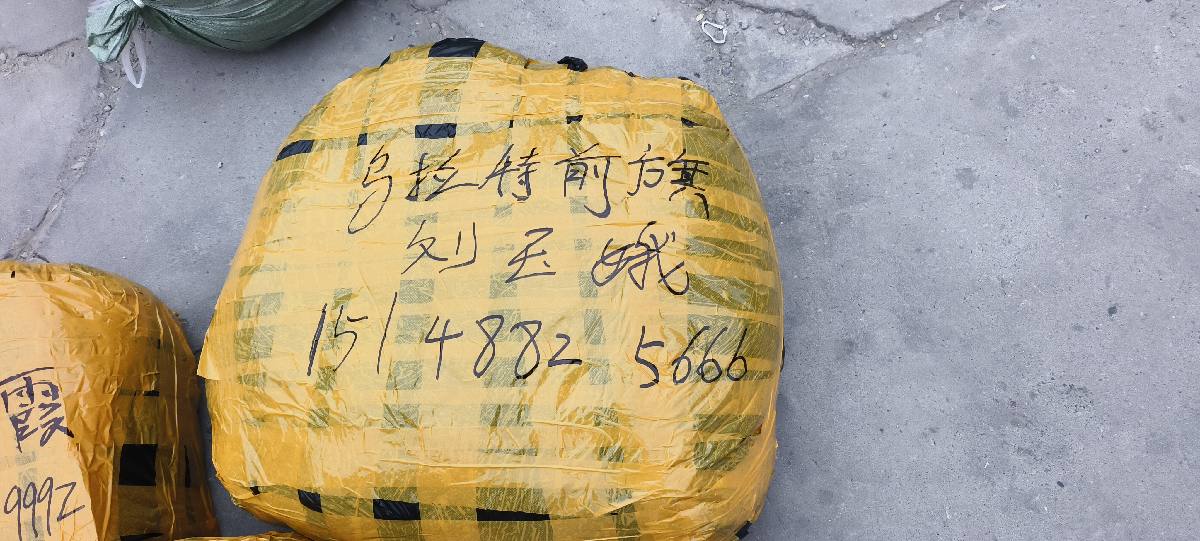 乌拉特前旗
刘玉娥
151 4882 5666
霞
9992